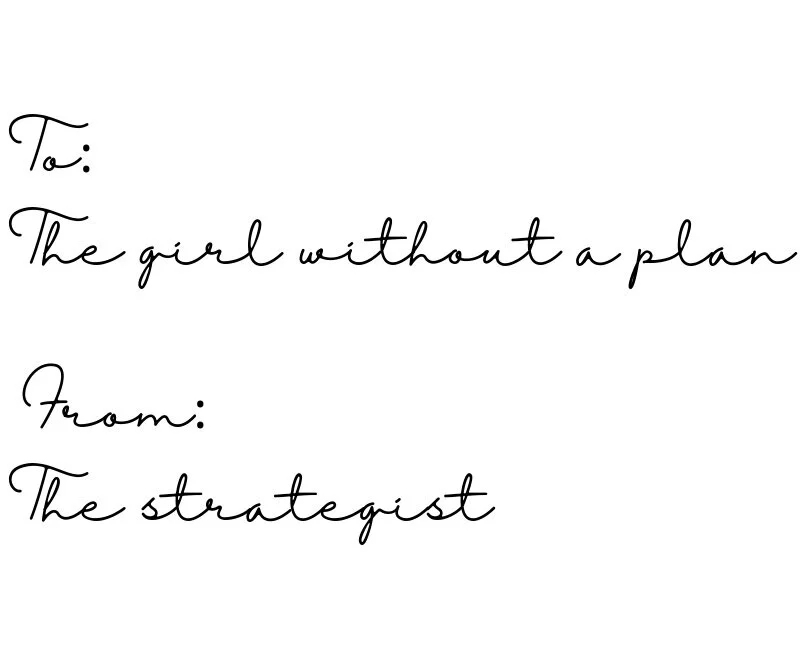 To:
The girl without a plan
From:
The strategist